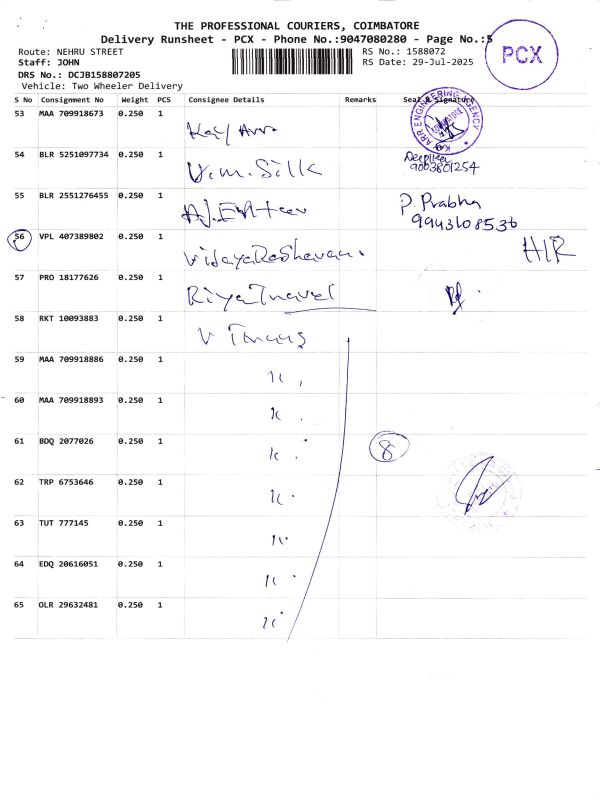 THE PROFESSIONAL COURIERS, COIMBATORE
Delivery Runsheet - PCX - Phone No.:9047080280 - Page No.:5
Route: NEHRU STREET
RS No.: 1588072
PCX
Staff: JOHN
RS Date: 29-Jul-2025
DRS No.: DCJB158807205
Vehicle: Two Wheeler Delivery
S No Consignment No Weight PCS Consignee Details Remarks Seal & Signature
53 MAA 709918673 0.250 1
Kay Arr.
54 BLR 5251097734 0.250 1
V.M. Silk
9003801254
55 BLR 2551276455 0.250 1
P. Prabha
9943108536
56 VPL 407389802 0.250 1
H/R
57 PRO 18177626 0.250 1
Riya Travel
58 RKT 10093883 0.250 1
59 MAA 709918886 0.250 1
60 MAA 709918893 0.250 1
61 BDQ 2077026 0.250 1
8
62 TRP 6753646 0.250 1
63 TUT 777145 0.250 1
64 EDQ 20616051 0.250 1
65 OLR 29632481 0.250 1